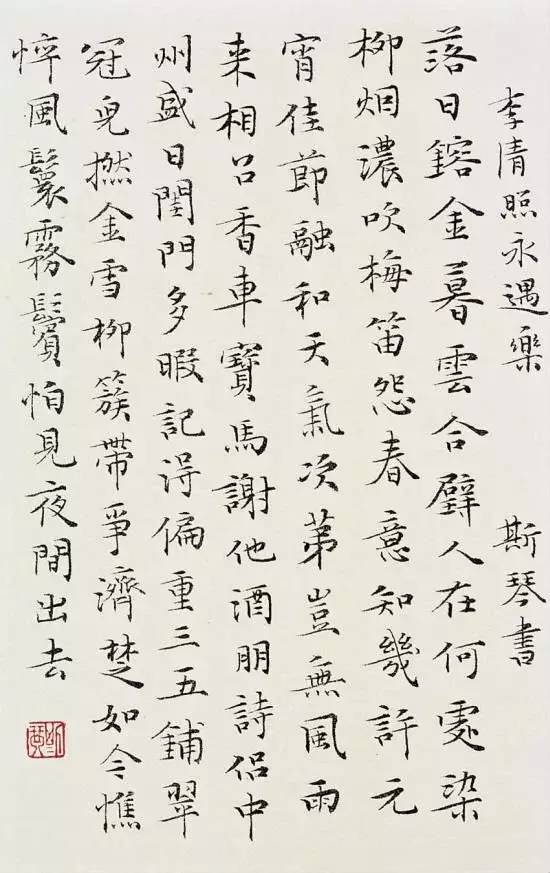 李清照永遇樂 斯琴書
落日鎔金暮雲合璧人在何處染
柳烟濃吹梅笛怨春意知幾許元
宵佳節融和天氣次第豈無風雨
来相召香車寶馬謝他酒朋詩侶中
州盛日閨門多暇記得偏重三五鋪翠
冠兒撚金雪柳簇帶爭濟楚如今憔
悴風鬟霧鬢怕見夜間出去